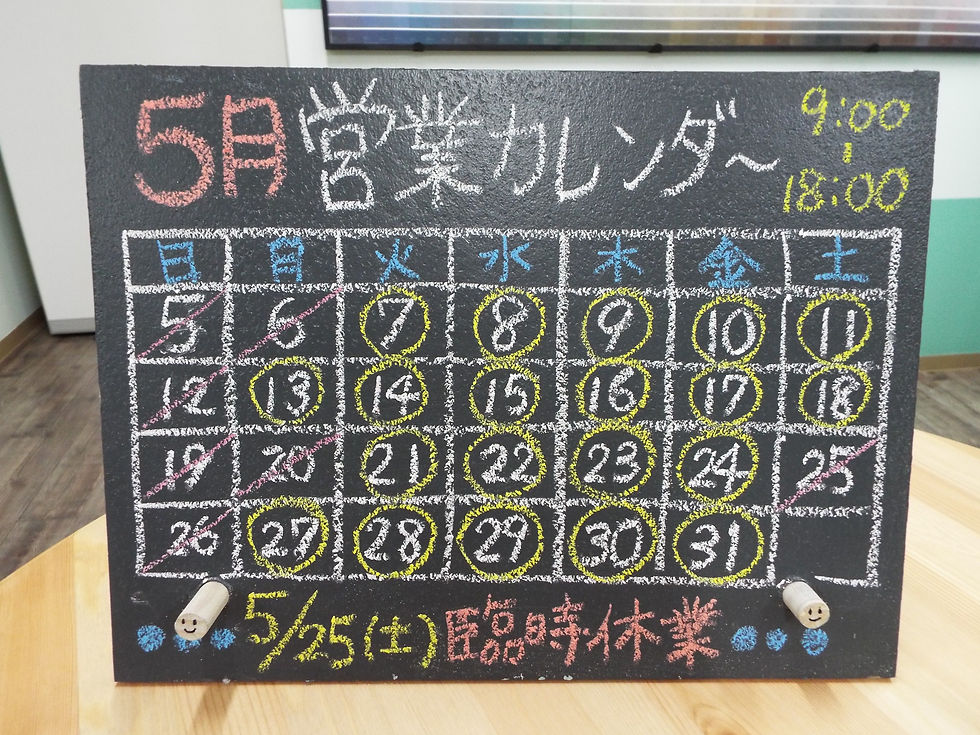 5月営業カレンダー 9:00
-
18:00
日 月 火 水 木 金 土
5 6 7 8 9 10 11
12 13 14 15 16 17 18
19 20 21 22 23 24 25
26 27 28 29 30 31
5/25(土)臨時休業